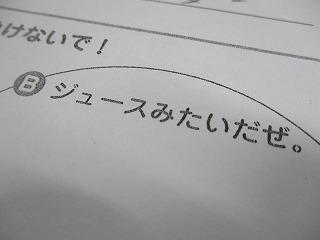 けないで！
B ジュースみたいだぜ。